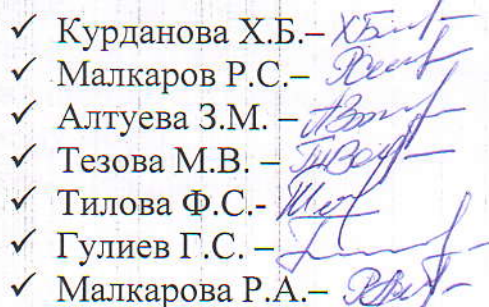 ✓ Курданова Х.Б.–
✓ Малкаров Р.С.–
✓ Алтуева З.М. –
✓ Тезова М.В. –
✓ Тилова Ф.С.-
✓ Гулиев Г.С. –
✓ Малкарова Р.А.–